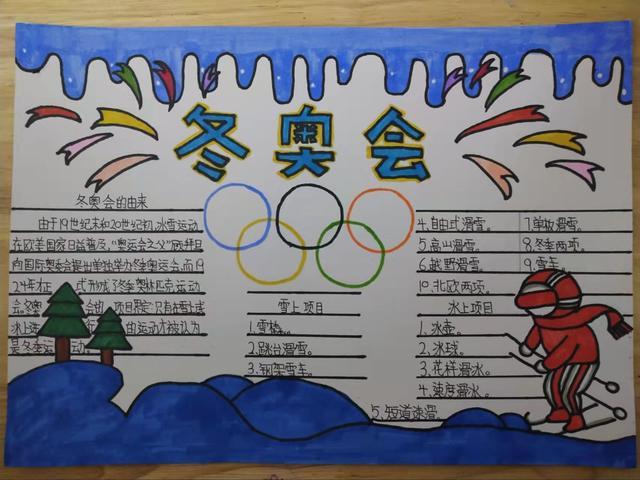 冬奥会
冬奥会的由来
由于19世纪末和20世纪初,冰雪运动
在欧美国家日益普及,"奥运会之父"顾拜旦
向国际奥委会提出单独举办冬季奥运会,而19
24年才正式形成了冬季奥林匹克运动
会。冬奥会的项目限定,只有在雪上或
冰上进行的运动才被认为
是冬季运动。
雪上项目
1.雪橇。
2.跳台滑雪。
3.钢架雪车。
4.自由式滑雪。
5.高山滑雪。
6.越野滑雪。
7.单板滑雪。
8.冬季两项。
9.雪车。
10.北欧两项。
冰上项目
1.冰壶。
2.冰球。
3.花样滑冰。
4.速度滑冰。
5.短道速滑。